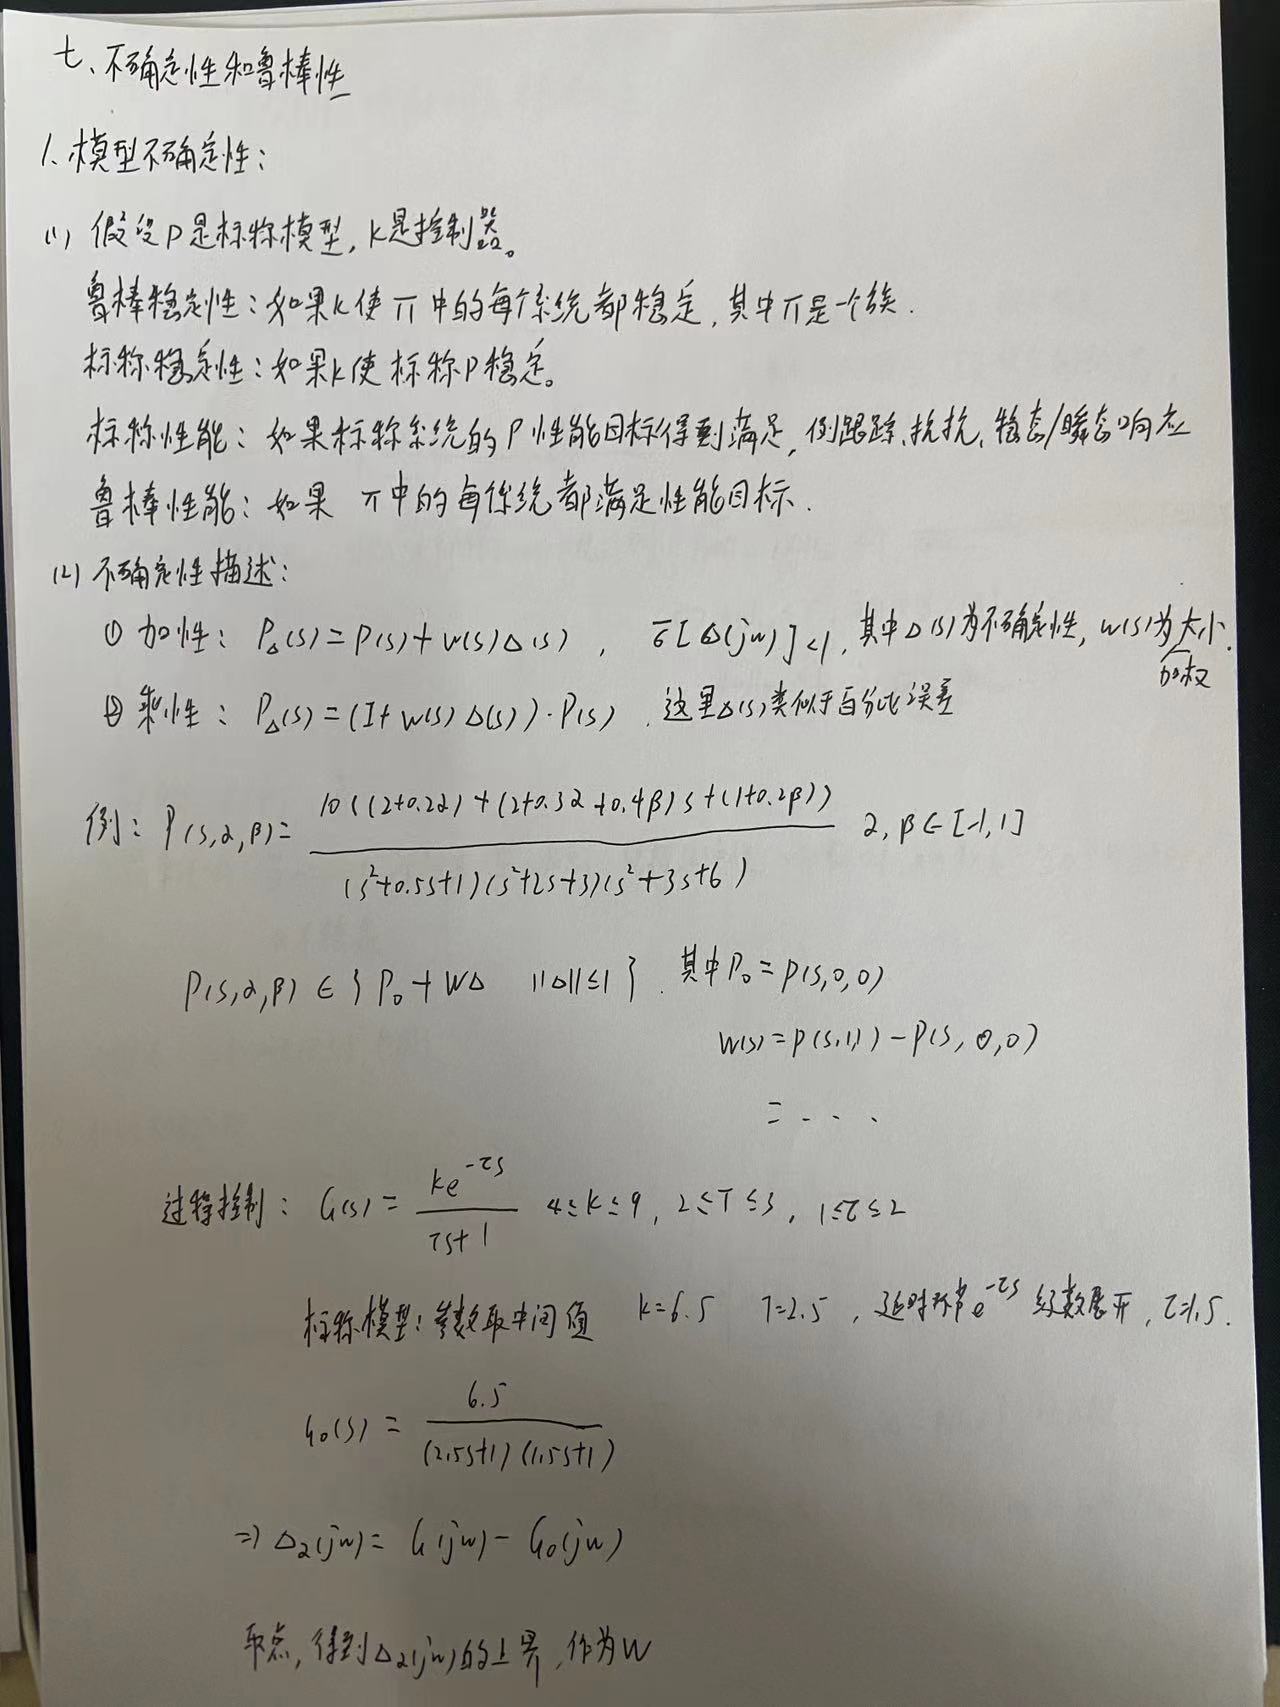 七、不确定性和鲁棒性
1. 模型不确定性：
(1) 假设P是标称模型，K是控制器。
鲁棒稳定性：如果K使 π 中的每个系统都稳定，其中π是一个族.
标称稳定性：如果K使标称P稳定。
标称性能：如果标称系统的P性能目标得到满足，例跟踪、抗扰、稳态/瞬态响应
鲁棒性能：如果 π中的每个系统都满足性能目标.
(2) 不确定性描述：
① 加性：P_Δ(s)=P(s)+W(s)Δ(s)，σ̄[Δ(jw)]<1，其中Δ(s)为不确定性，W(s)为大小.
加权
② 乘性：P_Δ(s)=(I+W(s)Δ(s))·P(s)，这里Δ(s)类似于百分比误差
例：P(s,α,β)= 10((2+0.2α)+(2+0.3α+0.4β)s+(1+0.2β)) / (s²+0.5s+1)(s²+2s+3)(s²+3s+6) α,β∈[-1,1]
P(s,α,β)∈{P₀+WΔ ||Δ||≤1}，其中P₀=P(s,0,0)
W(s)=P(s,1,1)-P(s,0,0)
=...
过程控制：G(s)= ke^{-τs} / Ts+1 4≤k≤9，2≤T≤3，1≤τ≤2
标称模型：参数取中间值 k=6.5 T=2.5，延时环节e^{-τs}级数展开，τ=1.5.
G₀(s)= 6.5 / (2.5s+1)(1.5s+1)
⇒Δ₂(jw)=G(jw)-G₀(jw)
取点，得到Δ₂(jw)的上界，作为W